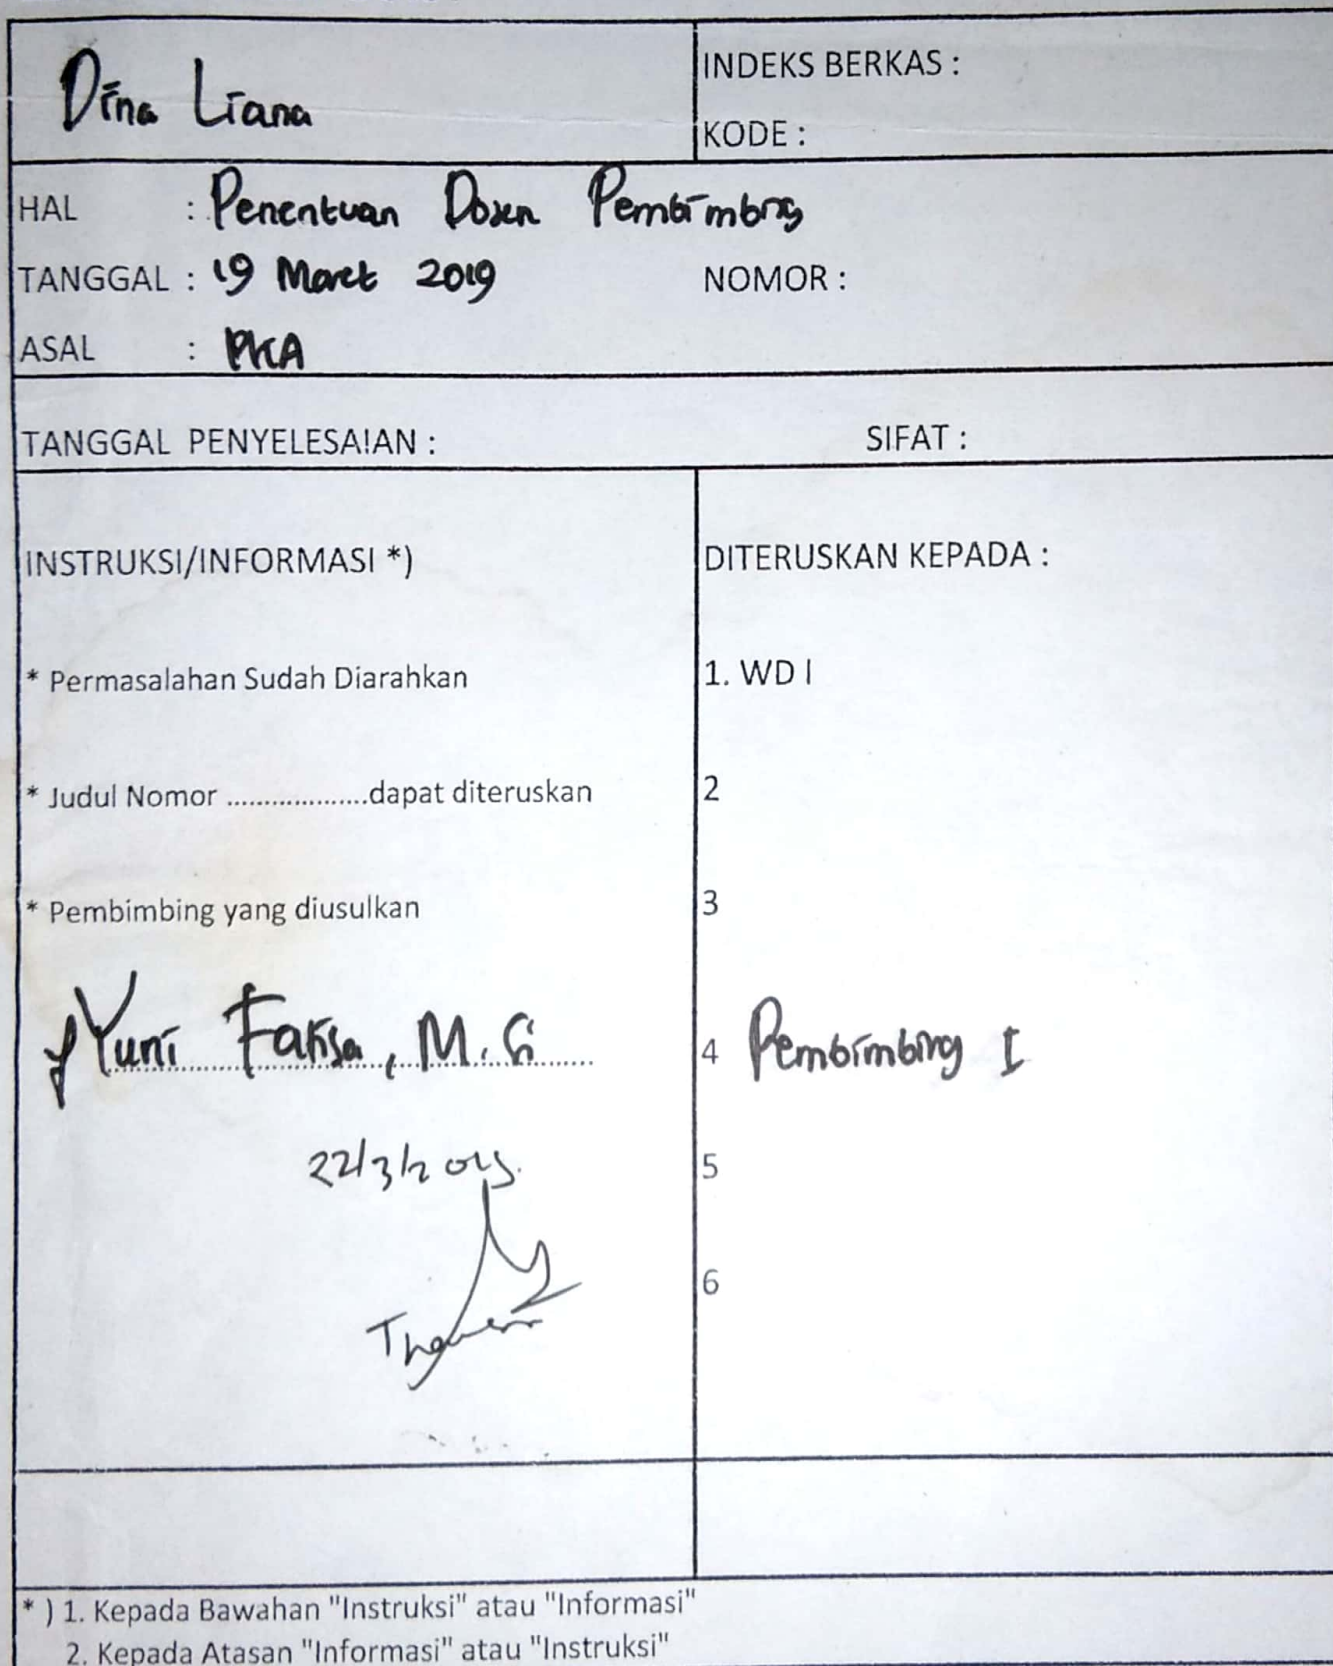 Dina Liana
INDEKS BERKAS :
KODE :
HAL : Penentuan Dosen Pembimbing
TANGGAL : 19 Maret 2019
NOMOR :
ASAL : PKA
TANGGAL PENYELESAIAN :
SIFAT :
INSTRUKSI/INFORMASI *)
DITERUSKAN KEPADA :
* Permasalahan Sudah Diarahkan
1. WD I
* Judul Nomor ..................dapat diteruskan
2
* Pembimbing yang diusulkan
3
Yuni Faksa, M.Si
4 Pembimbing I
22/3/2019.
5
6
* ) 1. Kepada Bawahan "Instruksi" atau "Informasi"
2. Kepada Atasan "Informasi" atau "Instruksi"